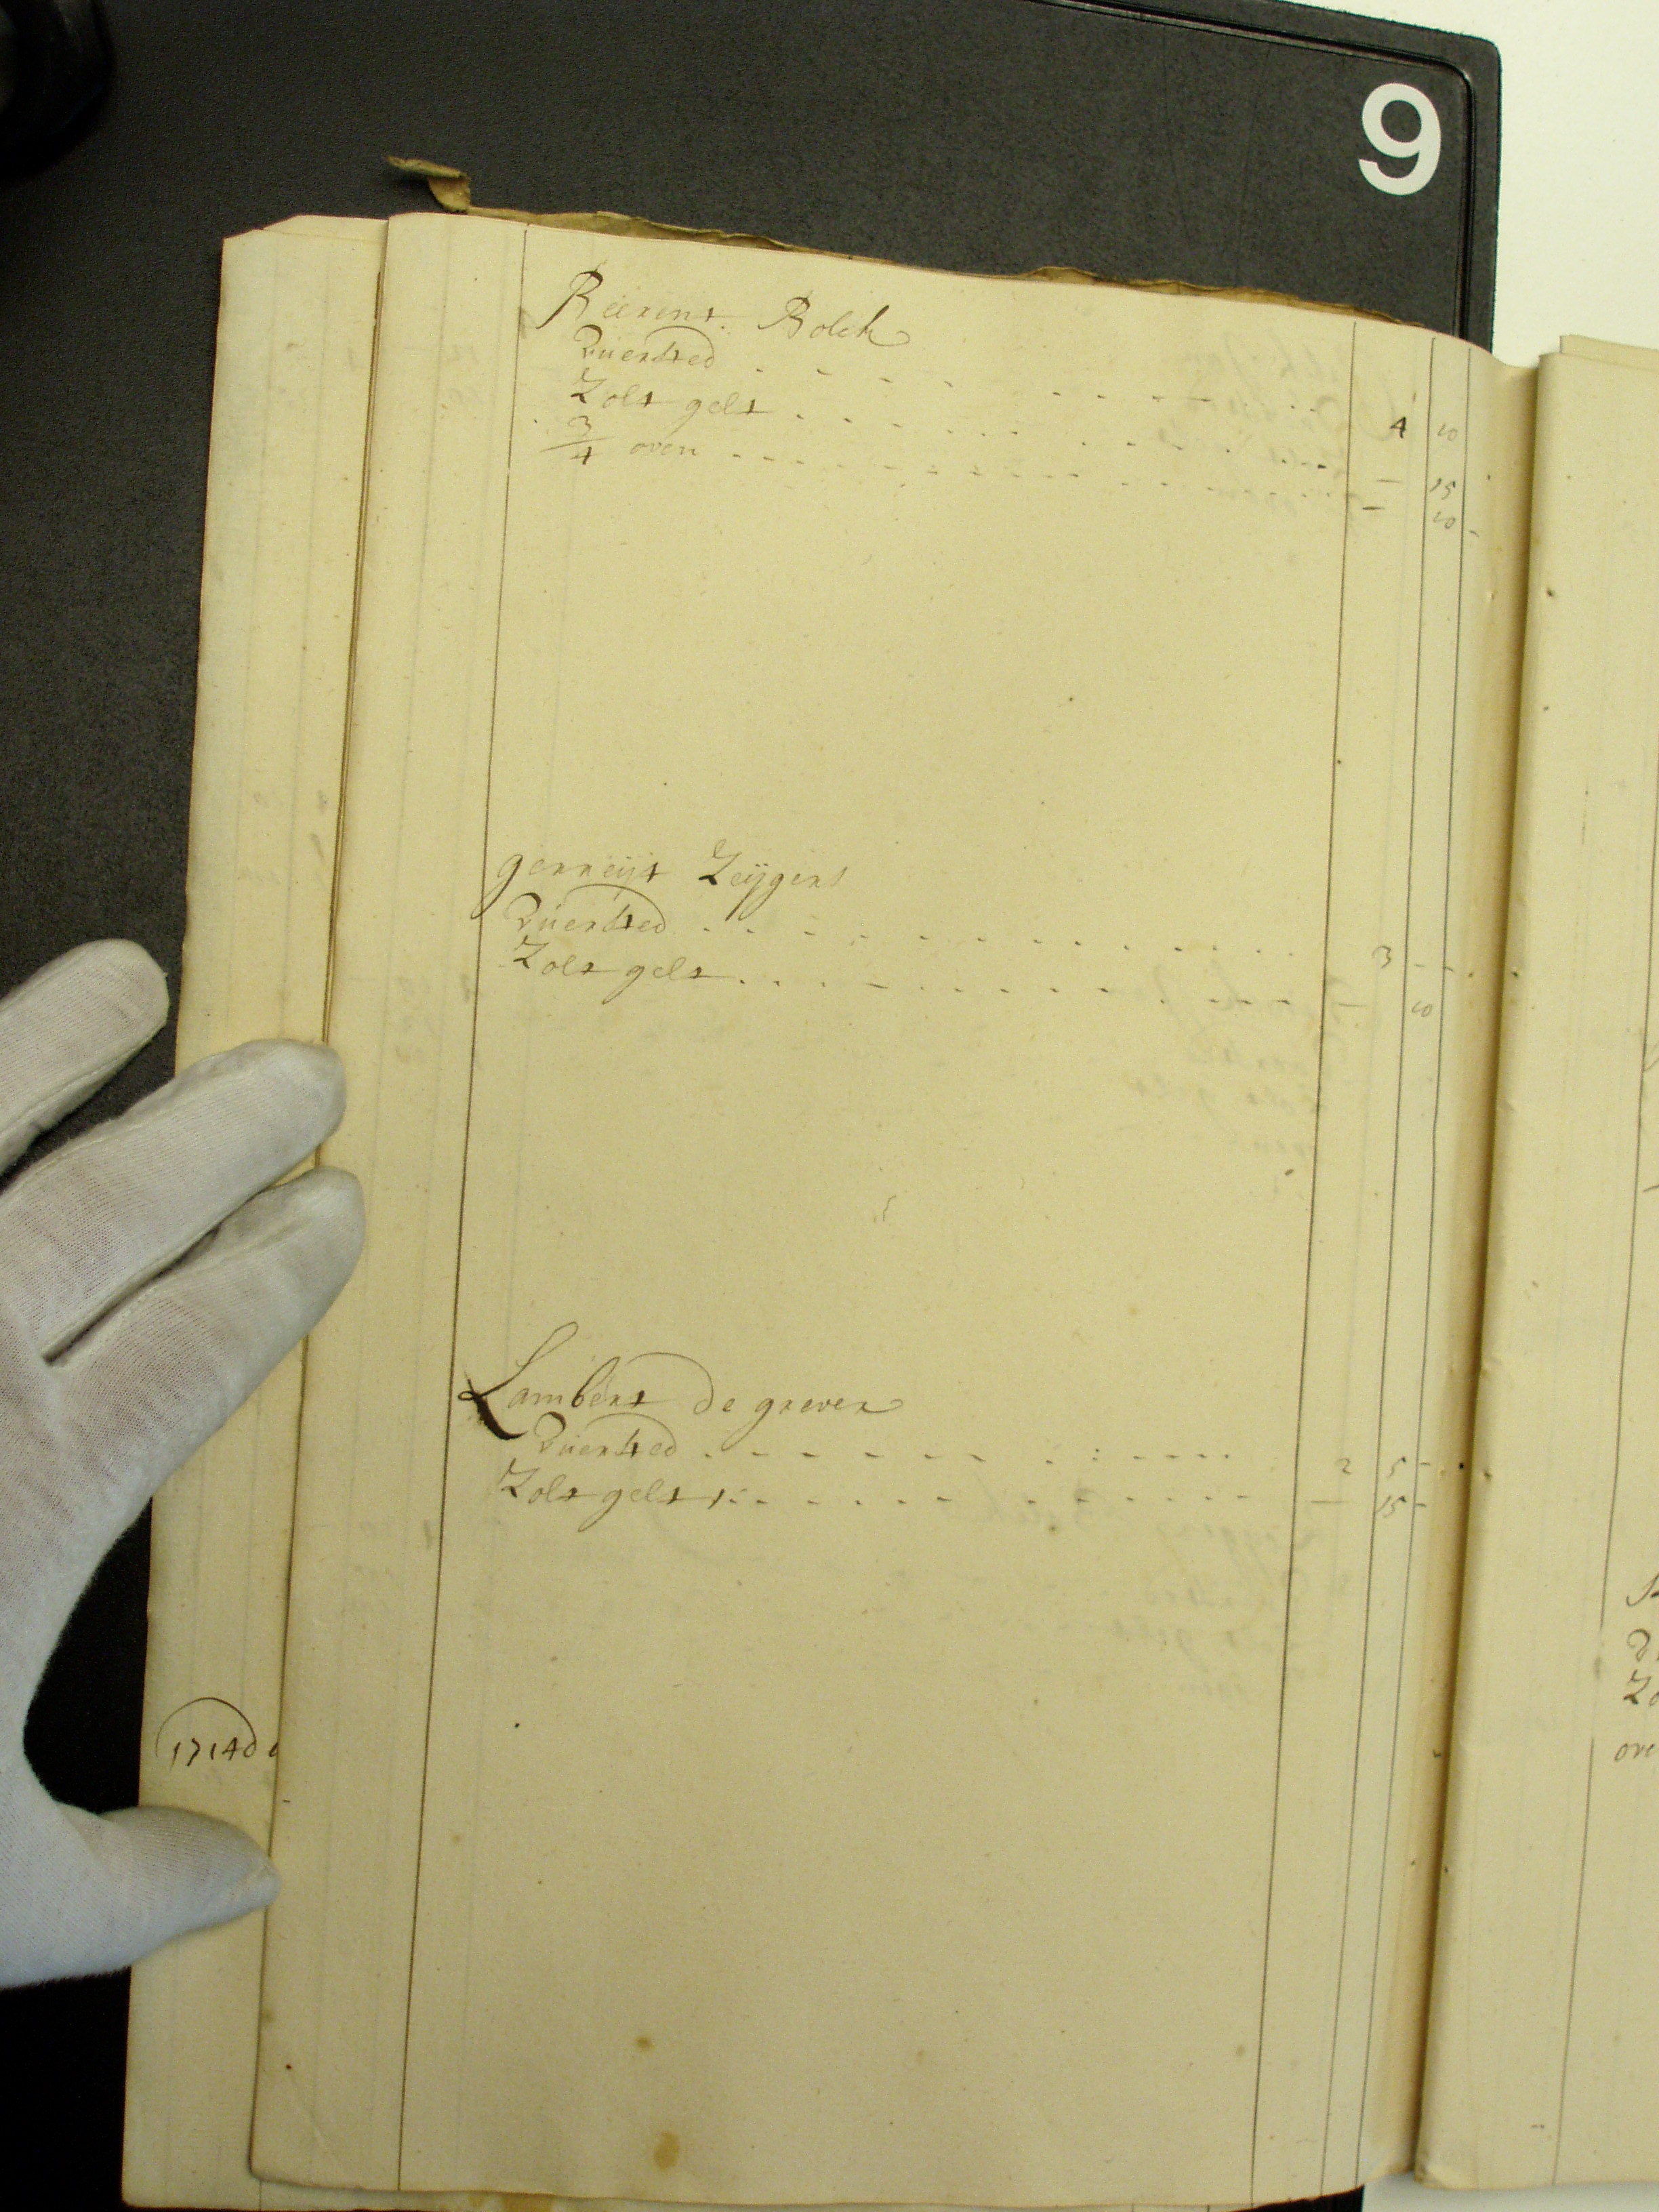 9
Beerent Bolck
Vuersted . . . . . . . . 4 10
Zolt gelt . . . . . . . . — 15
3/4 oven . . . . . . . . — 10 -
gerreijt Zeijgers
Vuersted . . . . . . . . 3 - -
Zolt gelt . . . . . . . . — 10
Lambert de grever
Vuersted . . . . . . . . 2 5 -
Zolt gelt . . . . . . . . — 15 -
1714 d
Zo
ove